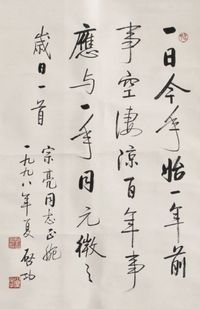 一日今年始一年前
事空淒涼百年事
應与一年同元微之
歲日一首
宗亮同志正
一九九八年夏 啓功